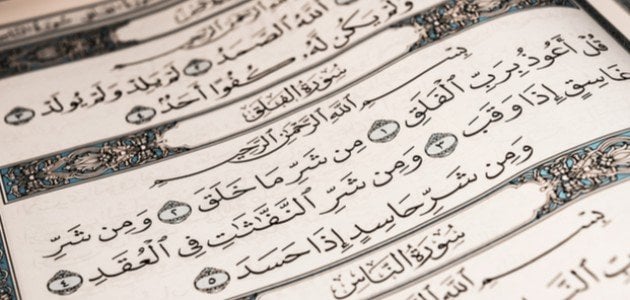 ٱللَّهُ ٱلصَّمَدُ ٢ لَمْ يَلِدْ وَلَمْ يُولَدْ ٣
وَلَمْ يَكُن لَّهُۥ كُفُوًا أَحَدٌۢ ٤
سُورَةُ الفَلَقِ
بِسْمِ ٱللَّهِ ٱلرَّحْمَٰنِ ٱلرَّحِيمِ
قُلْ أَعُوذُ بِرَبِّ ٱلْفَلَقِ ١ مِن شَرِّ مَا خَلَقَ ٢ وَمِن شَرِّ
غَاسِقٍ إِذَا وَقَبَ ٣ وَمِن شَرِّ ٱلنَّفَّٰثَٰتِ فِى ٱلْعُقَدِ ٤
وَمِن شَرِّ حَاسِدٍ إِذَا حَسَدَ ٥
سُورَةُ النَّاسِ
بِسْمِ ٱللَّهِ